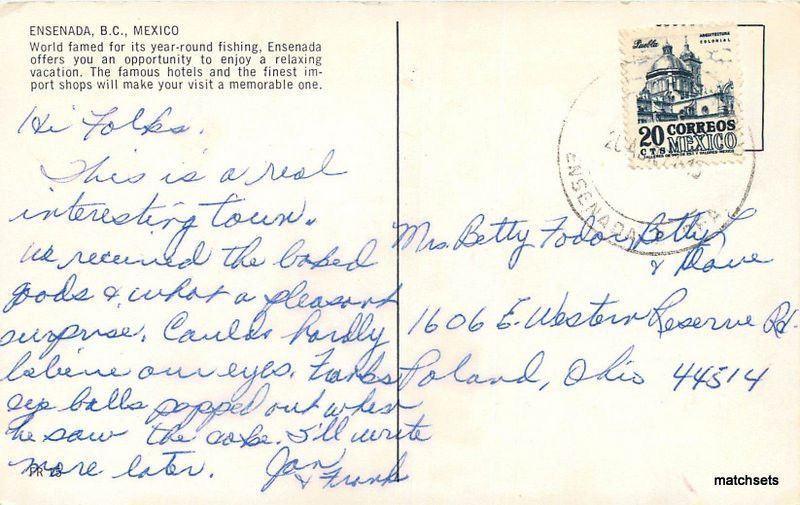 ENSENADA, B.C., MEXICO
World famed for its year-round fishing, Ensenada
offers you an opportunity to enjoy a relaxing
vacation. The famous hotels and the finest im-
port shops will make your visit a memorable one.
Hi Folks.
This is a real
interesting town.
We received the baked
goods & what a pleasant
surprise. Could hardly
believe our eyes. Franks
eye balls popped out when
he saw the cake. I'll write
more later. Jan
& Frank
PR
Puebla
ARQUITECTURA
COLONIAL
20 CORREOS
CTS MEXICO
ENSENADA
Mrs. Betty Fodor, Betty
& Dave
1606 E. Western Reserve Rd.
Poland, Ohio 44514
matchsets